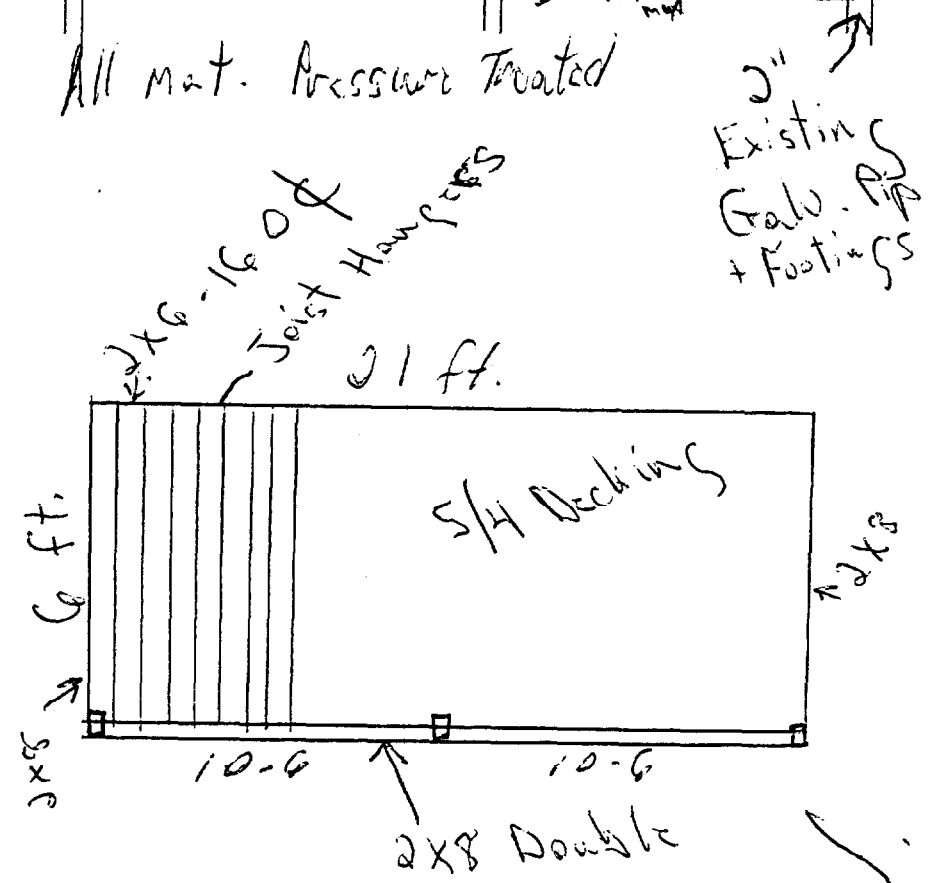 max
All Mat. Pressure Treated
2"
Existing
Galv. Pip
+ Footings
2x6 - 16 O ₵
Joist Hangers
21 ft.
5/4 Decking
6 ft.
2x8
2x8
10-6
10-6
2x8 Double